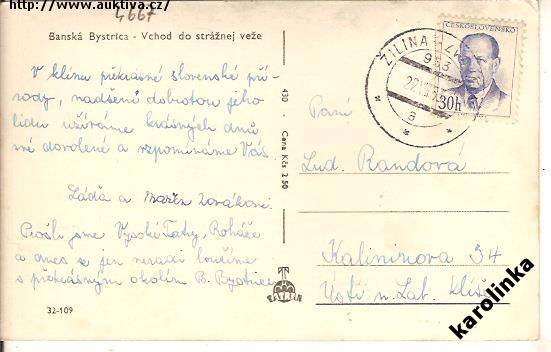 http://www.auktiva.cz/
4667
Banská Bystrica - Vchod do strážnej veže
V klínu překrasné slovenské pří-
rody, nadšeni dobrotou jeho
lidu užíváme krásných dnů
své dovolené a vzpomínáme Vás.
Láďa a
Prošli jsme Vysoké Tatry, Roháče
a dnes se jen neradi loučíme
s překrásným okolím B. Bystrice
32-109
430 - Cena Kčs 2.50
ČESKOSLOVENSKO
30h
ŽILINA
a
Paní
Lud. Randová
Kalininova 34
Ústí n. Lab. Klíše
karolinka